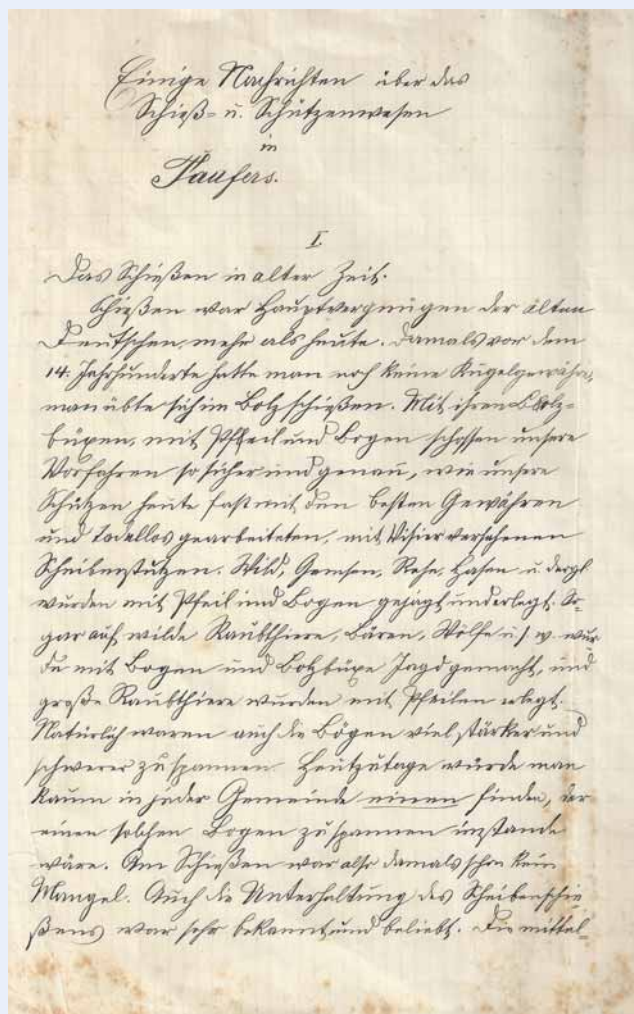 Einige Nachrichten über das
Schieß- u. Schützenwesen
in
Taufers.
I.
Das Schießen in alter Zeit.
Schießen war Hauptvergnügen der alten
Deutschen, mehr als heute. Damals vor dem
14. Jahrhunderte hatte man noch keine Kugelgewähre,
man übte sich im Bolzschießen. Mit ihren Bolz-
büxen, mit Pfeil und Bogen schossen unsere
Vorfahren so sicher und genau, wie unsere
Schützen heute fast mit den besten Gewähren
und tadellos gearbeiteten, mit Visier versehenen
Scheibenstutzen. Wild, Gemsen, Rehe, Hasen u. dergl
wurden mit Pfeil und Bogen gejagt und erlegt. So-
gar auf wilde Raubthiere, Bären, Wölfe u. s. w. wur
de mit Bogen und Bolzbüxe Jagd gemacht, und
große Raubthiere wurden mit Pfeilen erlegt.
Natürlich waren auch die Bögen viel stärker und
schwerer zu spannen. Heutzutage würde man
kaum in jeder Gemeinde einen finden, der
einen solchen Bogen zu spannen imstande
wäre. Am Schießen war also damals schon kein
Mangel. Auch die Unterhaltung des Scheibenschie
ßens war sehr bekannt und beliebt. Die mittel-